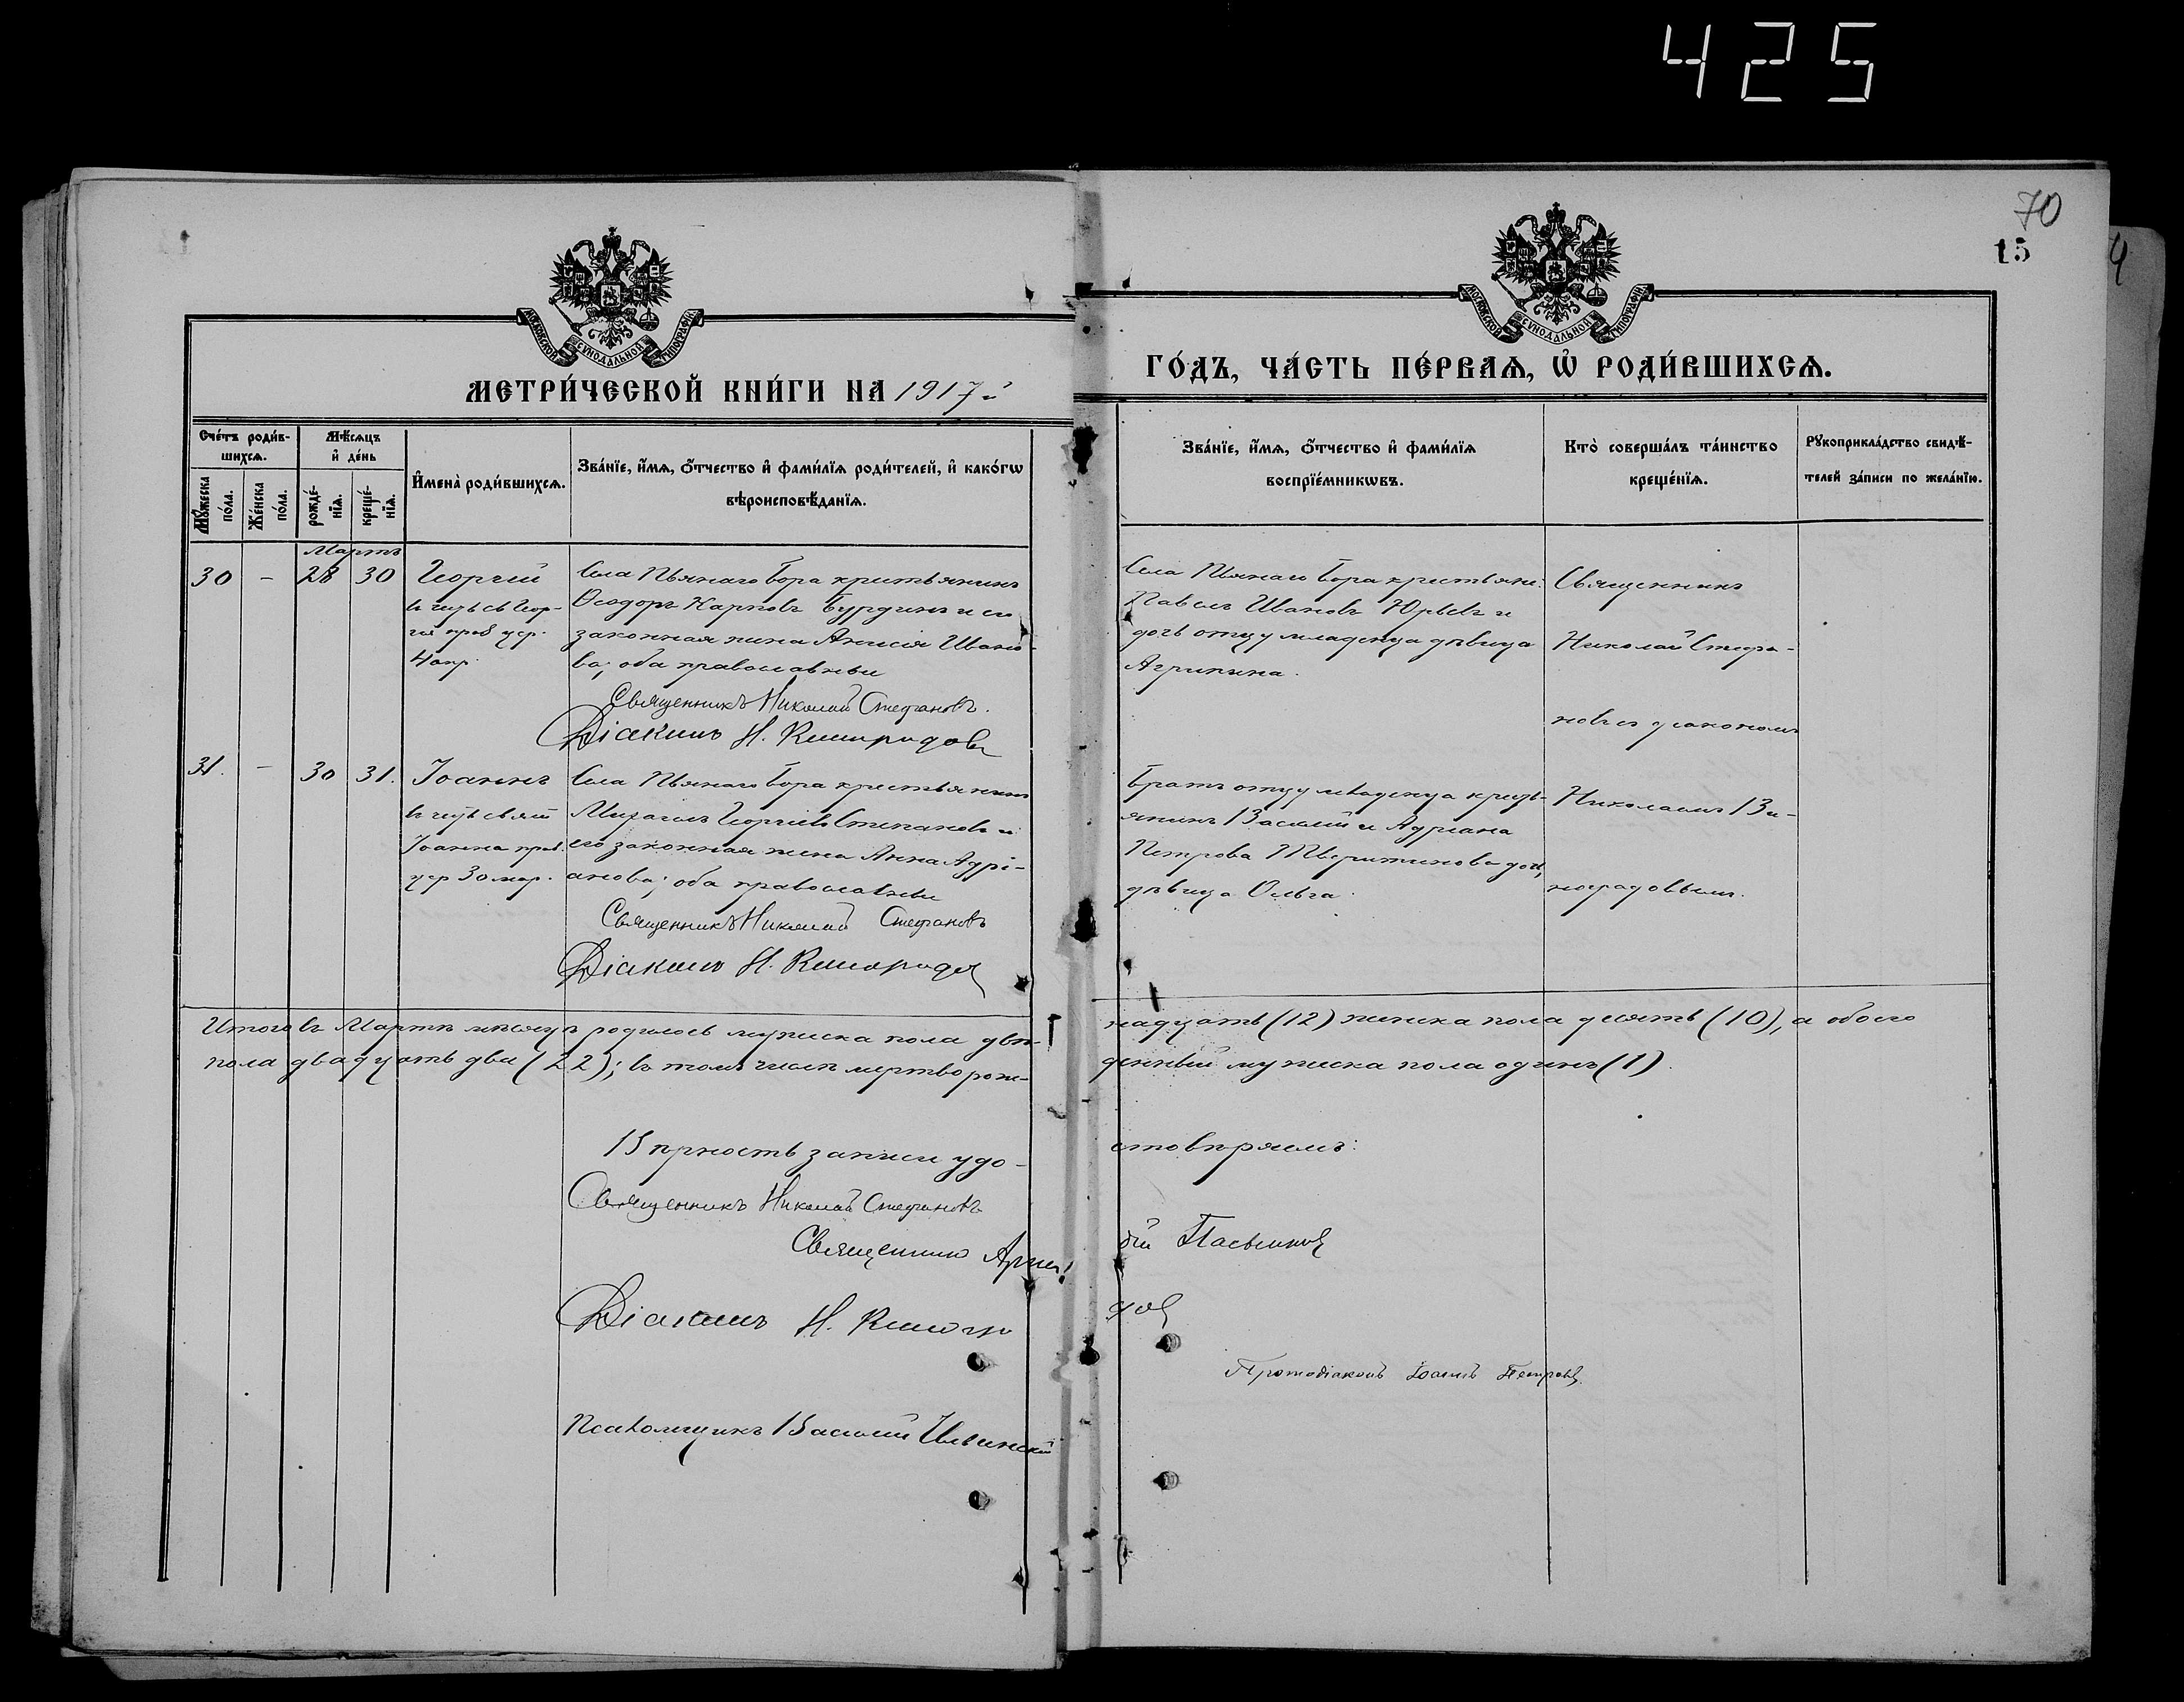 425
70
15
4
МОСКОВСКОЙ СѴНОДАЛЬНОЙ ТИПОГРАФІИ
МОСКОВСКОЙ СѴНОДАЛЬНОЙ ТИПОГРАФІИ
МЕТРИ́ЧЕСКОЙ КНИ́ГИ НА 1917й
ГО́ДЪ, ЧА́СТЬ ПЕ́РВАѦ, Ѡ҆ РОДИ́ВШИХСѦ.
Сче́тъ роди́в-
шихсѧ.
Мꙋ́жеска по́ла.
Же́нска по́ла.
Мѣ́сѧцъ
и҆ де́нь
рожде́-
нїѧ.
креще́-
нїѧ.
И҆мена̀ роди́вшихсѧ.
Зва́нїе, и҆́мѧ, ѻ҆́тчество и҆ фами́лїѧ роди́телей, и҆ како́гѡ
вѣроисповѣ́данїѧ.
Зва́нїе, и҆́мѧ, ѻ҆́тчество и҆ фами́лїѧ
воспрїе́мникѡвъ.
Кто̀ соверша́лъ та́инство
креще́нїѧ.
Рꙋкоприкла́дство свидѣ́-
телей за́писи по жела́нїю.
Мартъ
30 - 28 30 Георгій
въ честь св Геор-
гія
4 апр.
Села Пьянаго Бора крестьянинъ
Ѳеодоръ Карповъ Бурдинъ и его
законная жена Анисія Ивано-
ва; оба православные
Священникъ Николай Стефановъ.
Діаконъ Н. Виноградовъ
Села Пьянаго Бора крестьяне:
Павелъ Ивановъ Юрьевъ и
дочь отцу младенца дѣвица
Агрипина.
Священникъ
Николай Стефа-
новъ съ діакономъ
31. - 30 31. Іоаннъ
въ честь свят
Іоанна
30 мар.
Села Пьянаго Бора крестьянинъ
Михаилъ Георгіевъ Степановъ и
его законная жена Анна Адрі-
анова; оба православные
Священникъ Николай Стефановъ
Діаконъ Н. Виноградовъ
Братъ отцу младенца кресть-
янинъ Василій и Адріана
Петрова Тверитинова дочь,
дѣвица Ольга.
Николаемъ Ви-
ноградовымъ.
Итого въ Мартѣ мѣсяцѣ родилось мужска пола двѣ-
надцать (12) женска пола десять (10), а обоего
пола двадцать два (22); въ томъ числѣ мертворож-
денный мужска пола одинъ (1).
Вѣрность записи удо-
стовѣряемъ:
Священникъ Николай Стефановъ
Священникъ
Діаконъ Н. Виногра
довъ
Протодіаконъ Іоаннъ Петровъ
Псаломщикъ Василій Ильинскій